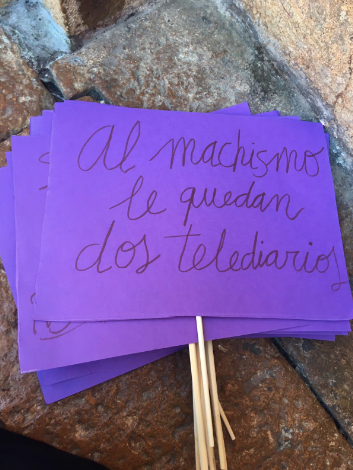 Al machismo
le quedan
dos telediarios